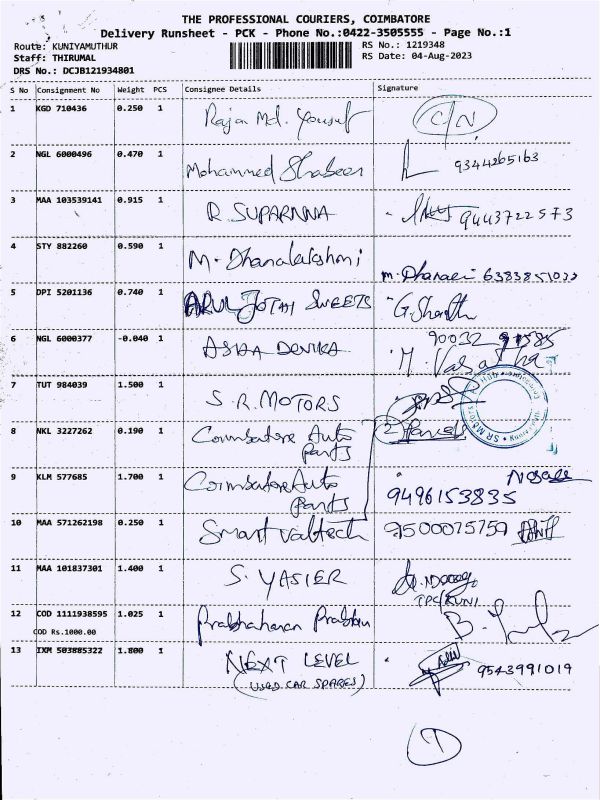 THE PROFESSIONAL COURIERS, COIMBATORE
Delivery Runsheet - PCK - Phone No.:0422-3505555 - Page No.:1
Route: KUNIYAMUTHUR RS No.: 1219348
Staff: THIRUMAL RS Date: 04-Aug-2023
DRS No.: DCJB121934801
S No Consignment No Weight PCS Consignee Details Signature
1 KGD 710436 0.250 1 Rajan Md. Yousuf C/N
2 NGL 6000496 0.470 1 Mohammed Shabeer 9344265163
3 MAA 103539141 0.915 1 R. SUPARNNA 9443722573
4 STY 882260 0.590 1 M. Dhanalakshmi
5 DPI 5201136 0.740 1 ARUL JOTHI SWEETS
6 NGL 6000377 -0.040 1 ASHA DEVIKA
7 TUT 984039 1.500 1 S.R. MOTORS
SR Motors
8 NKL 3227262 0.190 1 Coimbatore Auto Parts 2 Parcel
9 KLM 577685 1.700 1 Coimbatore Auto Parts 9496153835
10 MAA 571262198 0.250 1 Smart valtech 9500075759
11 MAA 101837301 1.400 1 S. YASIER
12 COD 1111938595 1.025 1 Prabhaharan Prabhu
COD Rs.1000.00
13 IXM 503885322 1.800 1 NEXT LEVEL 9543991019
(USED CAR SPARES)